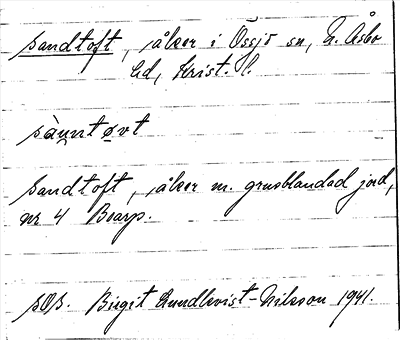 Sandtoft, åker i Össjö sn, N. Åsbo
hd, Krist. l.
sàu̯ntøvt
Sandtoft, åker m. grusblandad jord,
nr 4 Boarp.
SOS. Birgit Lundkvist-Nilsson 1941.